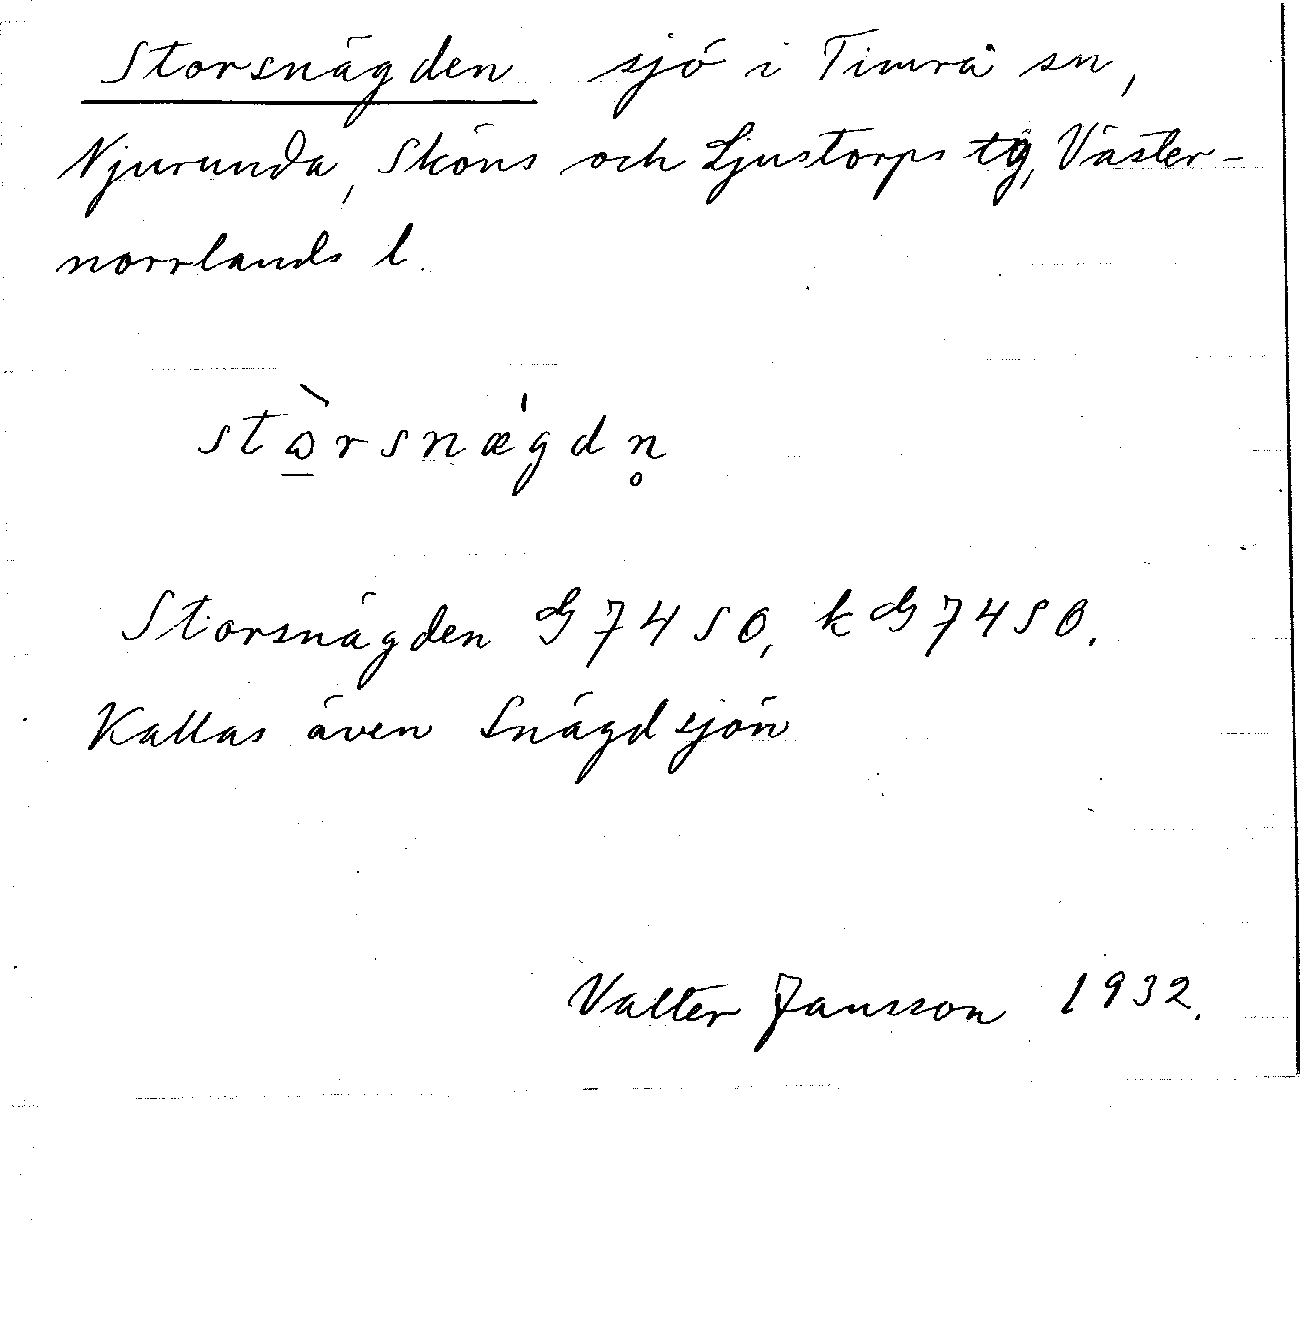 Storsnägden sjö i Timrå sn,
Njurunda, Sköns och Ljustorps tg, Väster-
norrlands l.
stɷ̠̀rsnǽgdn̥
Storsnägden G 74 SO, kG 74 SO.
Kallas även Snägdsjön
Valter Jansson 1932.